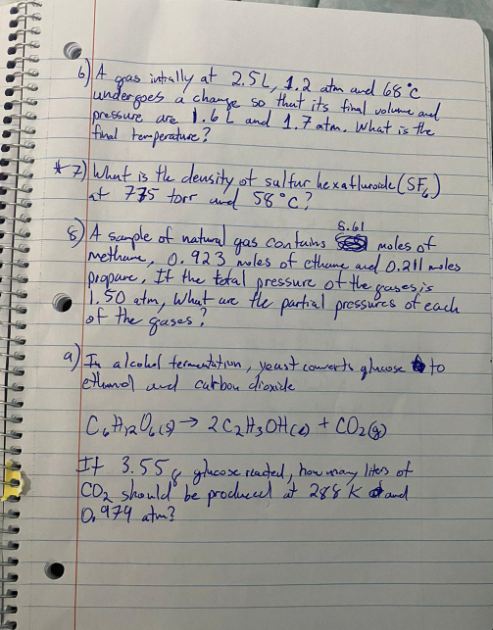 6) A gas intially at 2.5 L, 1.2 atm and 68°C
undergoes a change so that its final volume and
pressure are 1.6 L and 1.7 atm. What is the
final temperature?
* 7) What is the density of sulfur hexafluroide (SF₆)
at 775 torr and 58°C?
5.61
8) A sample of natural gas contains moles of
methane, 0.923 moles of ethane and 0.211 moles
propane, If the total pressure of the gases is
1.50 atm, What are the partial pressures of each
of the gases?
9) In alcohol fermentation, yeast converts glucose to
ethanol and carbon dioxide
C₆H₁₂O₆(s) → 2C₂H₃OH(l) + CO₂(g)
If 3.55 g glucose reacted, how many liters of
CO₂ should be produced at 288 K and
0.979 atm?